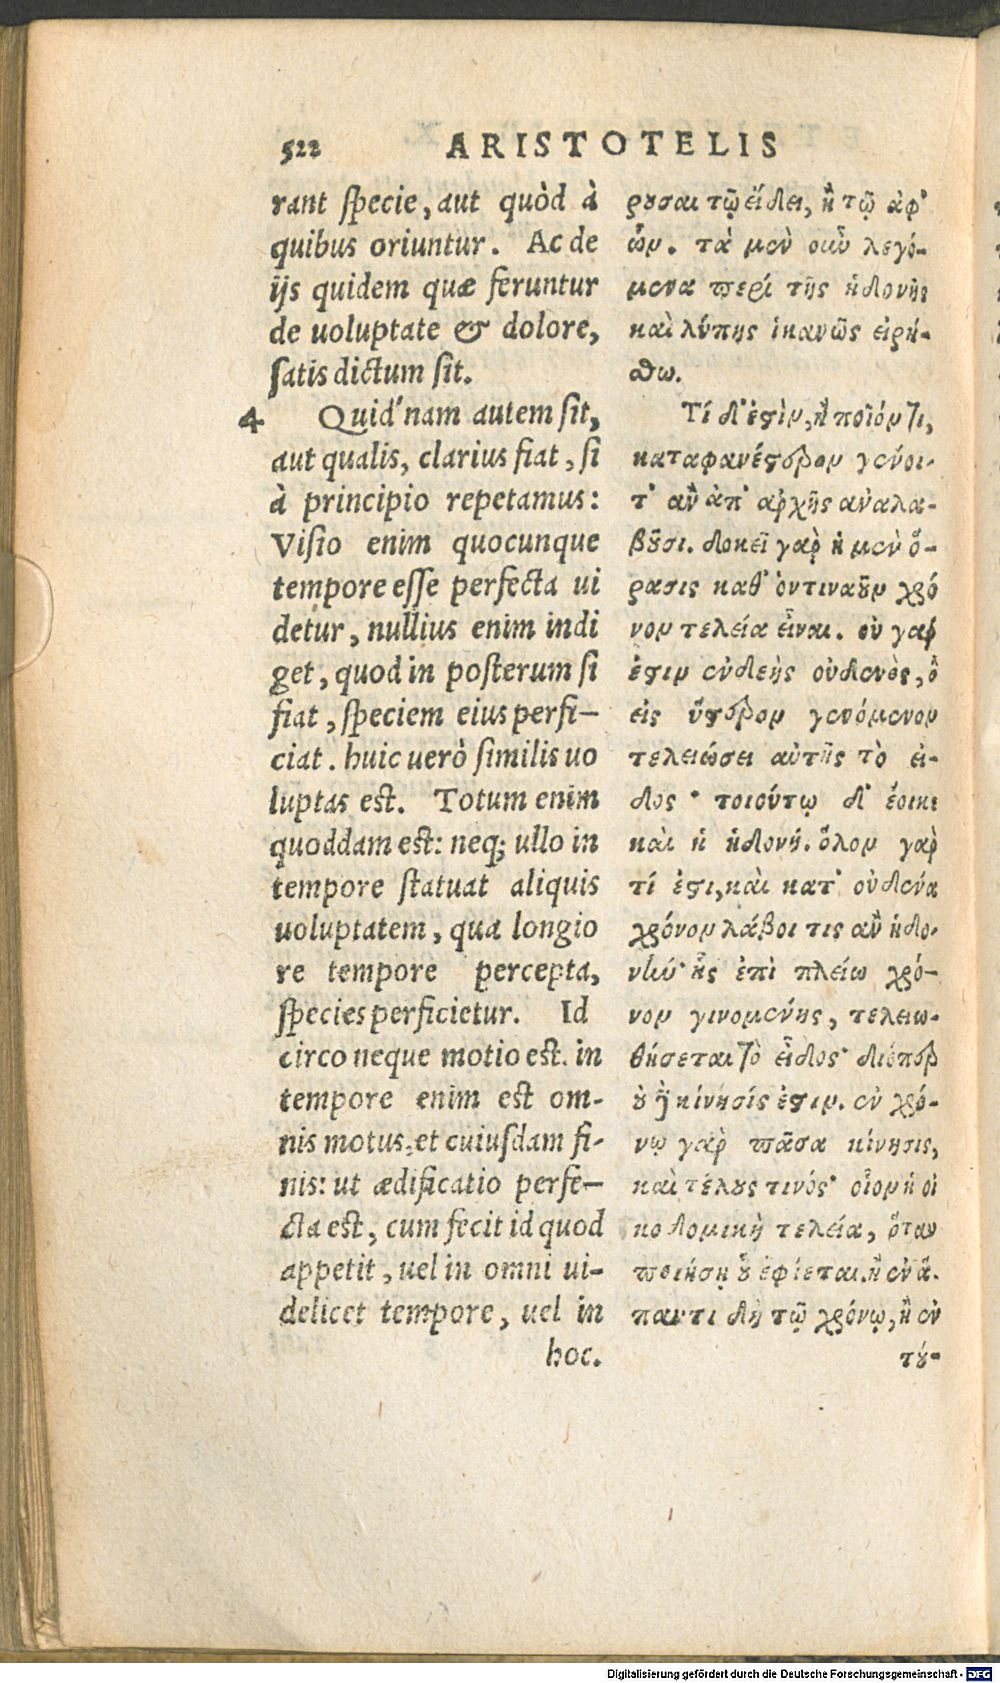 522 ARISTOTELIS
rant specie, aut quòd à
quibus oriuntur. Ac de
ijs quidem quæ feruntur
de uoluptate & dolore,
satis dictum sit.
4 Quid'nam autem sit,
aut qualis, clarius fiat, si
à principio repetamus:
Visio enim quocunque
tempore esse perfecta ui
detur, nullius enim indi
get, quod in posterum si
fiat, speciem eius perfi–
ciat. huic uerò similis uo
luptas est. Totum enim
quoddam est: neq; ullo in
tempore statuat aliquis
uoluptatem, qua longio
re tempore percepta,
species perficietur. Id
circo neque motio est. in
tempore enim est om-
nis motus, et cuiusdam fi-
nis: ut ædificatio perfe–
cta est, cum fecit id quod
appetit, uel in omni ui–
delicet tempore, uel in
hoc.
ρουσαι τῷ εἴδει, ἢ τῷ ἀφ᾽
ὧν. τὰ μὲν οὖν λεγό-
μενα περὶ τῆς ἡδονῆς
καὶ λύπης ἱκανῶς εἰρή-
σθω.
Τί δ᾽ ἐστὶν, ἢ ποῖόν τι,
καταφανέστερον γένοι-
τ᾽ ἂν ἀπ᾽ ἀρχῆς ἀναλα-
βοῦσι. δοκεῖ γὰρ ἡ μὲν ὅ-
ρασις καθ᾽ ὁντιναοῦν χρό
νον τελεία εἶναι. οὐ γάρ
ἐστιν ἐνδεὴς οὐδενὸς, ὃ
εἰς ὕστερον γενόμενον
τελειώσει αὐτῆς τὸ εἶ-
δος· τοιούτῳ δ᾽ ἔοικε
καὶ ἡ ἡδονή. ὅλον γὰρ
τί ἐστι, καὶ κατ᾽ οὐδένα
χρόνον λάβοι τις ἂν ἡδο-
νὴν· ἧς ἐπὶ πλείω χρό–
νον γινομένης, τελειω-
θήσεται τὸ εἶδος· διόπερ
οὐδὲ κίνησίς ἐστιν. ἐν χρό-
νῳ γὰρ πᾶσα κίνησις,
καὶ τέλους τινός· οἷον ἡ οἰ
κοδομικὴ τελεία, ὅταν
ποιήσῃ οὗ ἐφίεται. ἢ ἐν ἅ-
παντι δὴ τῷ χρόνῳ, ἢ ἐν
τού-
Digitalisierung gefördert durch die Deutsche Forschungsgemeinschaft - DFG